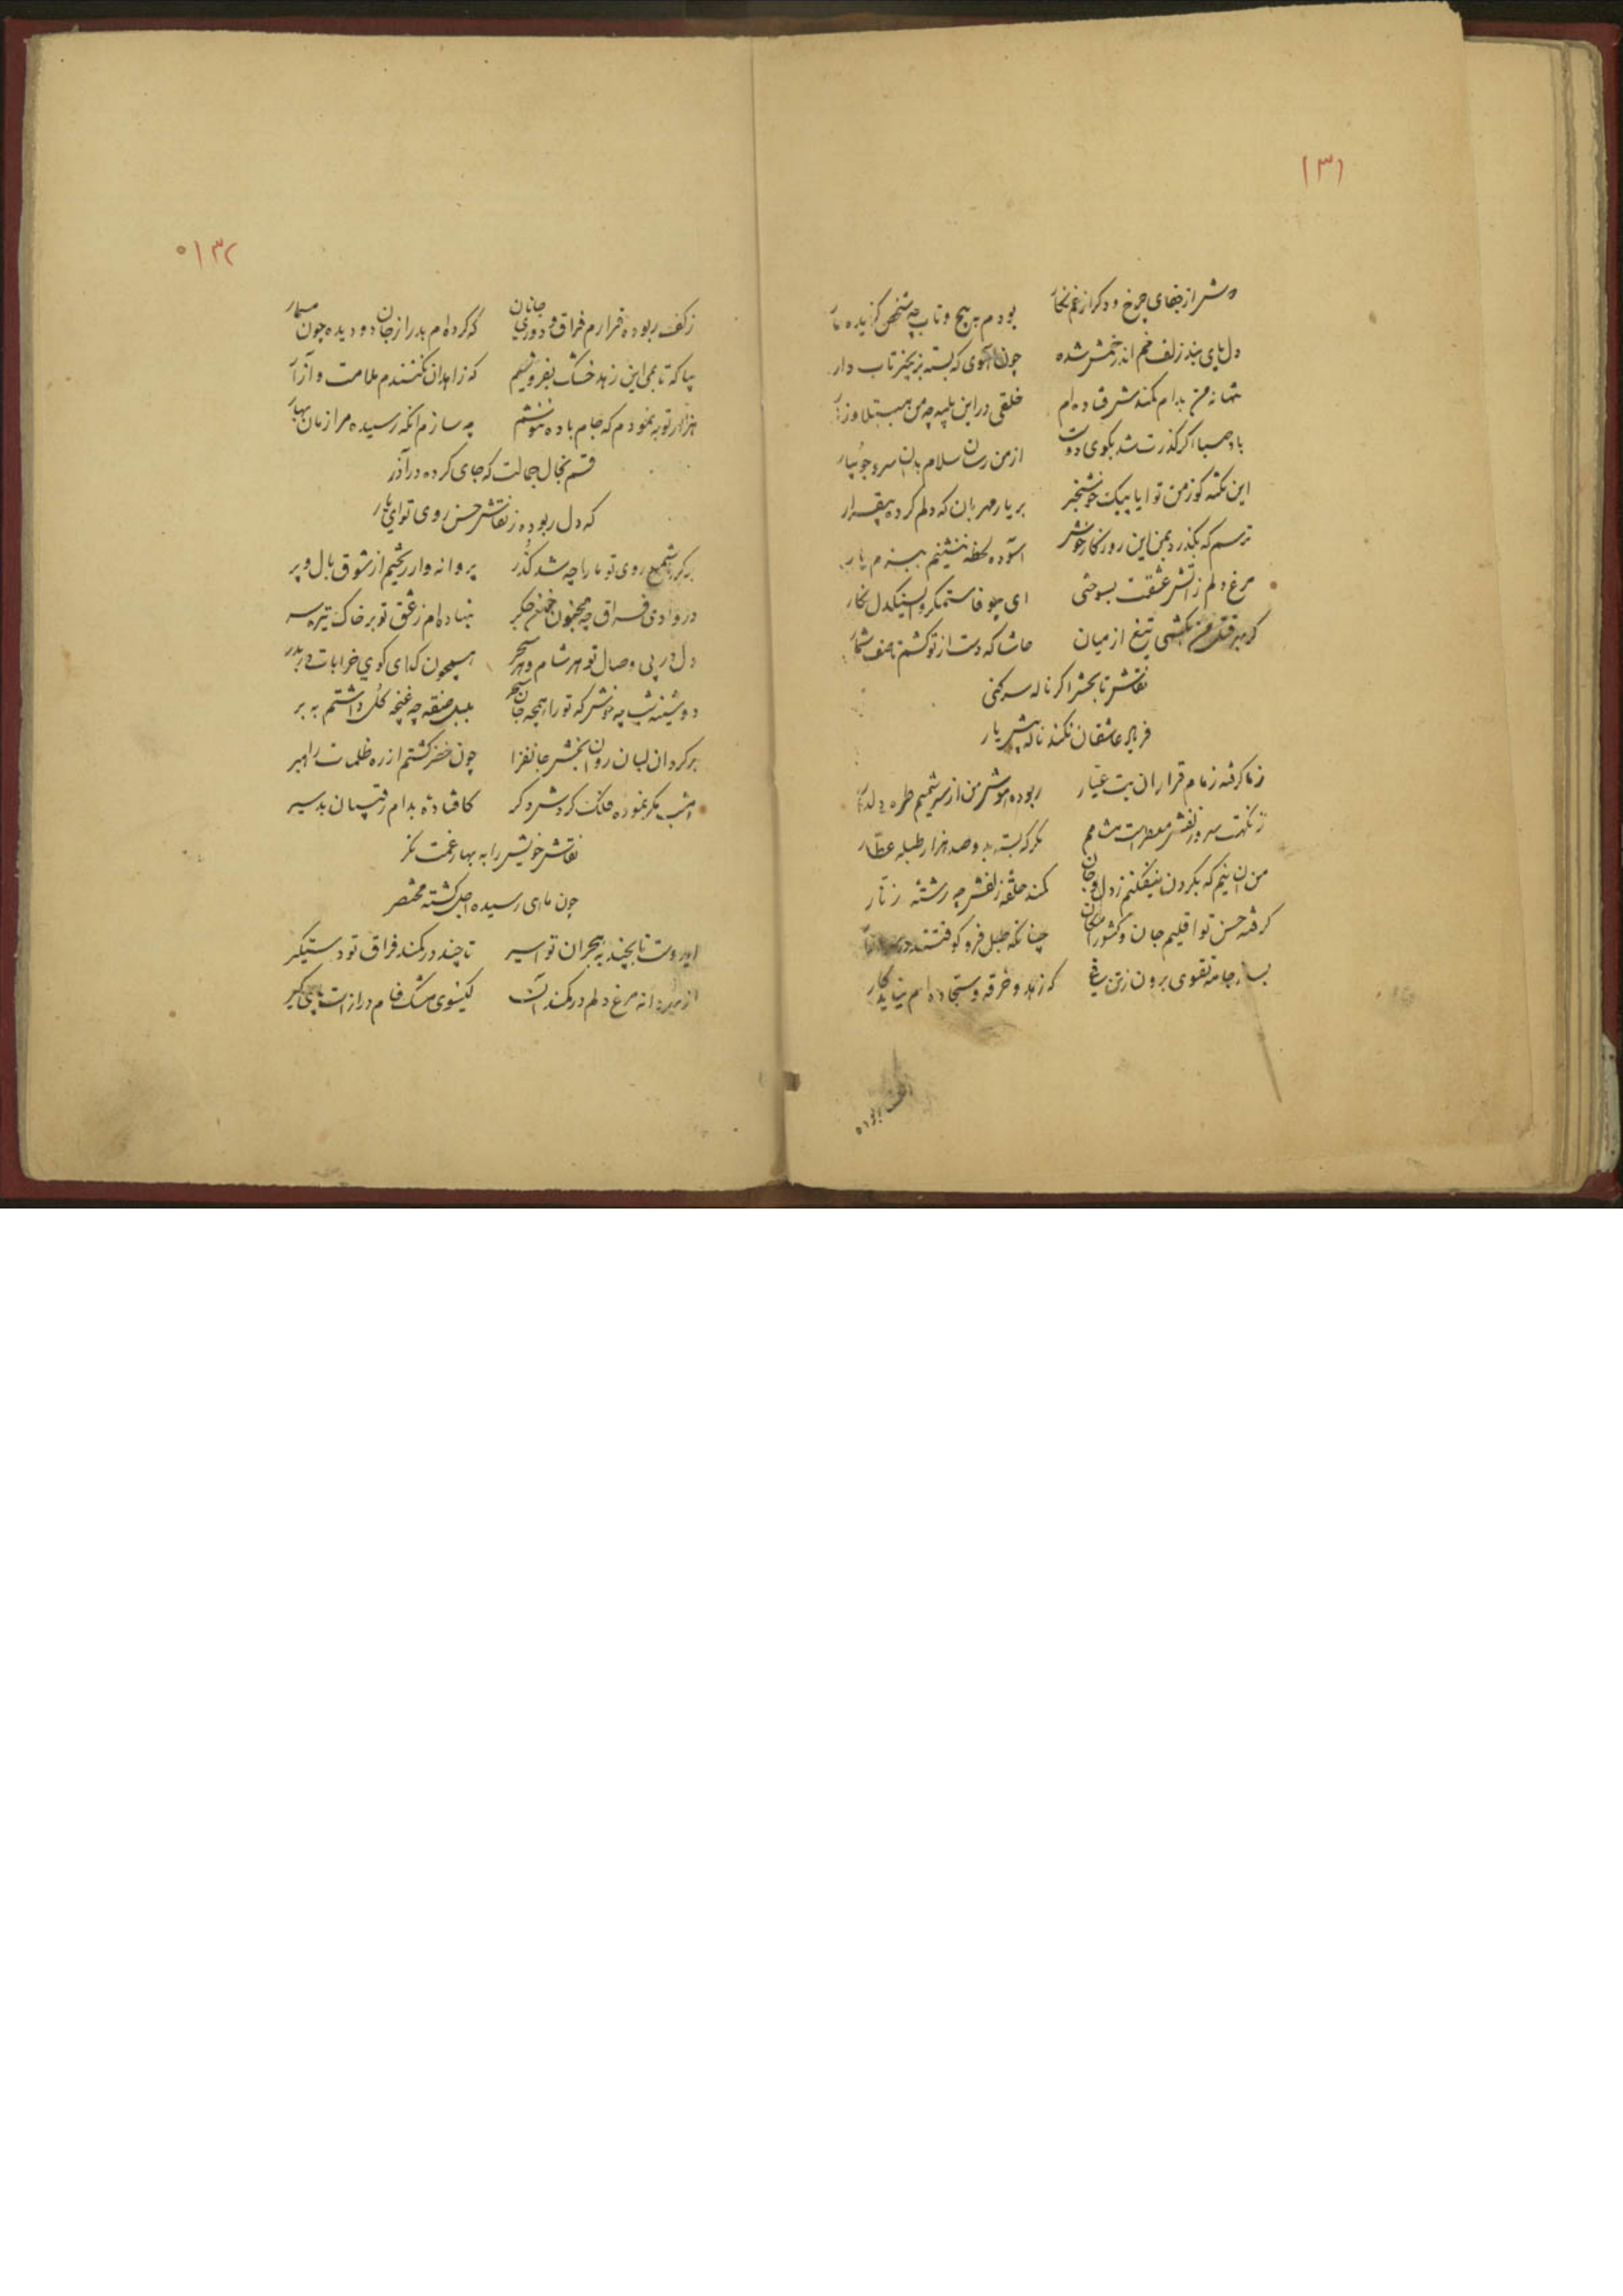 ۱۳۱
دوش از جفای چرخ و دکر از غم نکار بودم به پیچ و تاب چه شخص کزیده مار
دل پای بند زلف خم اندر خمش شده چون آهوی که بسته بزنجیر تاب دار
تنها نه من بدام کمندش فتاده ام خلقی در این بلیه چه من مبتلا و زار
باد صبا اکر کذرت شد بکوی دوست از من رسان سلام بدان سرو جویبار
این نکته کو ز من تو ایا پیک خوشخبر بر یار مهربان که دلم کرده بیقرار
ترسم که بکذرد بمن این روزکار خوش آسوده لحظه ننشینم ببزم یار
مرغ دلم ز آتش عشقت بسوختی ای بیوفا ستمکر و سنیکدل نکار
کر بهر قتل من بکشی تیغ از میان حاشا که دست از تو کشم تا صف شمار
نقاش تا بحشر اکر ناله سر کنی
فریاد عاشقان نکند ناله پیش یار
ز ما کرفته زمام قرار ان بت عیار ربوده هوش من از سر شمیم طره دلدار
ز نکهت سر زلفش معطر است مشامم مکر که بسته بدو صد هزار طبله عطار
من ان نیم که بکردن نیفکنم ز دل و جان کمند حلقه زلفش چه رشته زنار
کرفته حسن تو اقلیم جان و کشور امکان چنانکه طبل فرو کوفتند در بازار
بساز جامه تقوی برون ز تن که زهد و خرقه و سجاده ام نیاید بکار
۱۳۲
ز کف ربوده قرارم فراق و دوری جانان که کرده ام بدر از جان دو دیده چون مسمار
بیا که تا بمی این زهد خشک بفروشیم که زاهدان نکنندم ملامت و آزار
هزار توبه نمودم که جام باده ننوشم چه سازم انکه رسیده مرا زمان بهار
قسم بخال جمالت که جای کرده در آذر
که دل ربوده ز نقاش حسن روی تو ای یار
بر کرد شمع روی تو ما را چه شد کذر پروانه وار ریختیم از شوق بال و پر
در وادی فراق چه مجنون خسته جکر بنهاده ام ز عشق تو بر خاک تیره سر
دل در پی وصال تو هر شام و هر سحر همچون کدای کوی خرابات در بدر
دوشینه شب چه خوش که تو را همچه جان بلبل صفته چه غنچه کل داشتم به بر
بر کرد ان لبان روان بخش جانفزا چون خضر کشتم از ره ظلمات راهبر
امشب مکر نموده فلک کردش دکر کافتاده بدام رقیبان بد سیر
نقاش خویش را به بهار غمت نکر
چون ماه ای رسیده اجل کشته محتضر
ایدوست تا بچند به هجران تو اسیر تا چند در کمند فراق تو دستکیر
از بهر دانه مرغ دلم در کمند کیسوی مشک فام دراز است